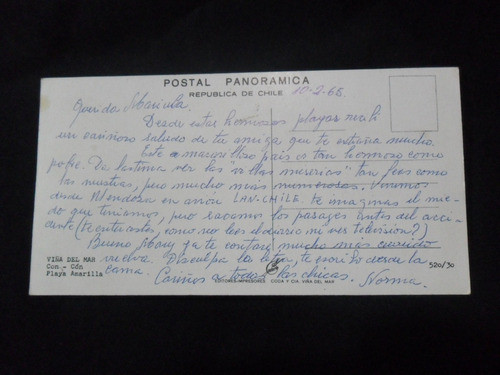 POSTAL PANORAMICA
REPUBLICA DE CHILE
10-2-65
Querida Maricela.
Desde estas hermosas playas recibí
un cariñoso saludo de tu amiga que te extraña mucho.
Este maravilloso país es tan hermoso como
pobre. Da lástima ver las "villas miserias" tan feas como
las nuestras, pero mucho más numerosas. Vinimos
desde Mendoza en avión LAN-CHILE. te imaginas el mie-
do que teníamos, pero sacamos los pasajes antes del acci-
dente (te enteraste, como sos leer el diario ni ves televisión?)
Bueno Mary ya te contaré mucho más cuando
vuelva. Disculpa la letra, te escribo desde la
cama. Cariños a todas las chicas. Norma.
VIÑA DEL MAR
Con - Cón
Playa Amarilla
EDITORES IMPRESORES CODA Y CIA. VIÑA DEL MAR
520/30